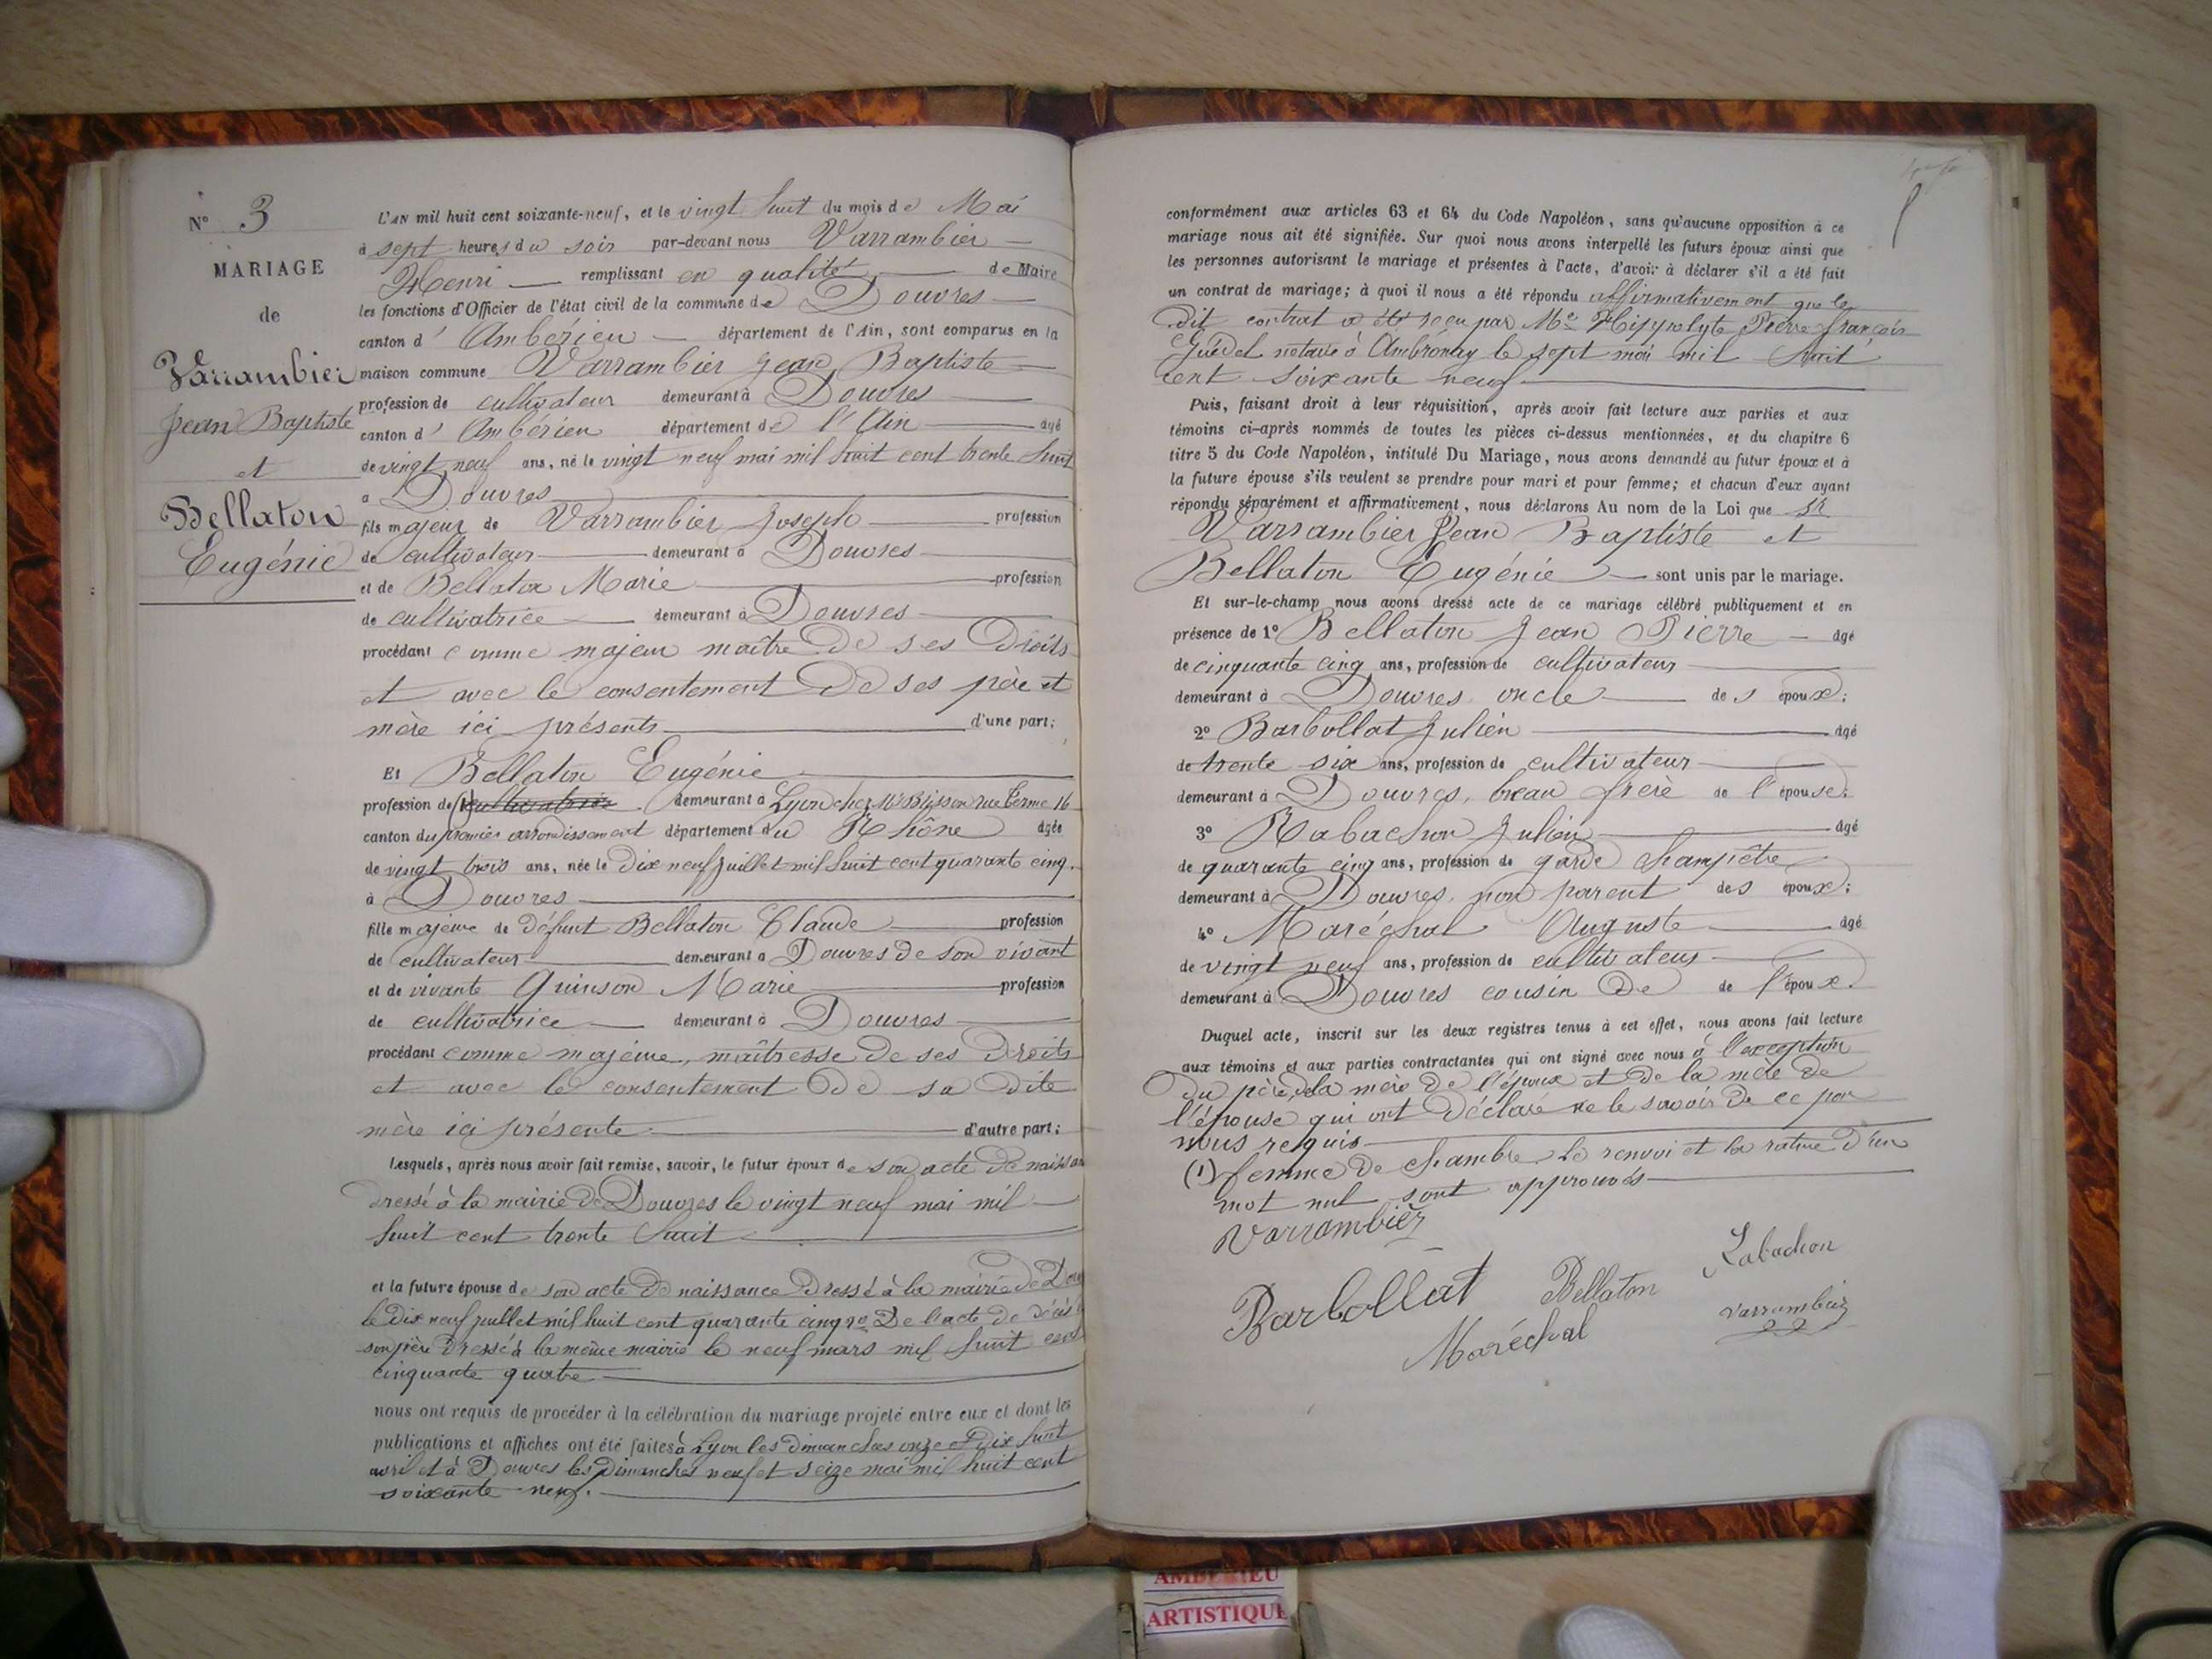 N° 3
MARIAGE
de
Varrambier
Jean Baptiste
et
Bellaton
Eugénie
L'AN mil huit cent soixante-neuf, et le vingt huit du mois de Mai
à sept heures du soir par-devant nous Varrambier
Henri remplissant en qualité de Maire
les fonctions d'Officier de l'état civil de la commune de Douvres
canton d' Ambérieu département de l'Ain, sont comparus en la
maison commune Varrambier Jean Baptiste
profession de cultivateur demeurant à Douvres
canton d' Ambérieu département de l'Ain âgé
de vingt neuf ans, né le vingt neuf mai mil huit cent trente huit
à Douvres
fils majeur de Varrambier Joseph profession
de cultivateur demeurant à Douvres
et de Bellaton Marie profession
de cultivatrice demeurant à Douvres
procédant comme majeur maître de ses droits
et avec le consentement de ses père et
mère ici présents d'une part;
Et Bellaton Eugénie
profession de (1) cultivatrice demeurant à Lyon chez Mr Brisson rue Terme 16
canton du premier arrondissement département du Rhône âgée
de vingt trois ans, née le dix neuf juillet mil huit cent quarante cinq.
à Douvres
fille majeure de défunt Bellaton Claude profession
de cultivateur demeurant à Douvres de son vivant
et de vivante Quinson Marie profession
de cultivatrice demeurant à Douvres
procédant comme majeure, maîtresse de ses droits
et avec le consentement de sa dite
mère ici présente d'autre part;
Lesquels, après nous avoir fait remise, savoir, le futur époux de son acte de naissan
dressé à la mairie de Douvres le vingt neuf mai mil
huit cent trente huit
et la future épouse de son acte de naissance dressé à la mairie de Dou
le dix neuf juillet mil huit cent quarante cinq 2° De l'acte de décès
son père dressé à la même mairie le neuf mars mil huit cent
cinquante quatre
nous ont requis de procéder à la célébration du mariage projeté entre eux et dont les
publications et affiches ont été faites à Lyon les dimanches onze et dix huit
avril et à Douvres les Dimanches neuf et seize mai mil huit cent
soixante neuf.
conformément aux articles 63 et 64 du Code Napoléon, sans qu'aucune opposition à ce
mariage nous ait été signifiée. Sur quoi nous avons interpellé les futurs époux ainsi que
les personnes autorisant le mariage et présentes à l'acte, d'avoir à déclarer s'il a été fait
un contrat de mariage; à quoi il nous a été répondu affirmativement que le
dit contrat a été reçu par Me Hippolyte Pierre françois
notaire à Ambronay le sept mai mil huit
cent soixante neuf
Puis, faisant droit à leur réquisition, après avoir fait lecture aux parties et aux
témoins ci-après nommés de toutes les pièces ci-dessus mentionnées, et du chapitre 6
titre 5 du Code Napoléon, intitulé Du Mariage, nous avons demandé au futur époux et à
la future épouse s'ils veulent se prendre pour mari et pour femme; et chacun d'eux ayant
répondu séparément et affirmativement, nous déclarons Au nom de la Loi que
Varrambier Jean Baptiste et
Bellaton Eugénie sont unis par le mariage.
Et sur-le-champ nous avons dressé acte de ce mariage célébré publiquement et en
présence de 1° Bellaton Jean Pierre âgé
de cinquante cinq ans, profession de cultivateur
demeurant à Douvres oncle des époux;
2° Barbollat Julien âgé
de trente six ans, profession de cultivateur
demeurant à Douvres, beau frère de l'épouse;
3° Rabachon Julien âgé
de quarante cinq ans, profession de garde champêtre
demeurant à Douvres, non parent des époux;
4° Maréchal Auguste âgé
de vingt neuf ans, profession de cultivateur
demeurant à Douvres cousin de de l'époux.
Duquel acte, inscrit sur les deux registres tenus à cet effet, nous avons fait lecture
aux témoins et aux parties contractantes qui ont signé avec nous à l'exception
du père, de la mère de l'époux et de la mère de
l'épouse qui ont déclaré ne le savoir de ce par
nous requis
(1) femme de chambre. Le renvoi et la rature d'un
mot nul sont approuvés
Varrambier
Rabachon
Barbollat
Bellaton
Varrambier
Maréchal
AMBERIEU
ARTISTIQUE